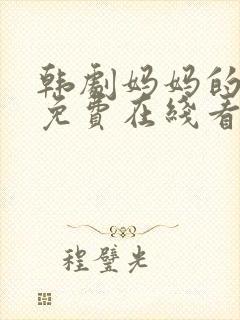 韩剧妈妈的
免費在綫看
程璧光